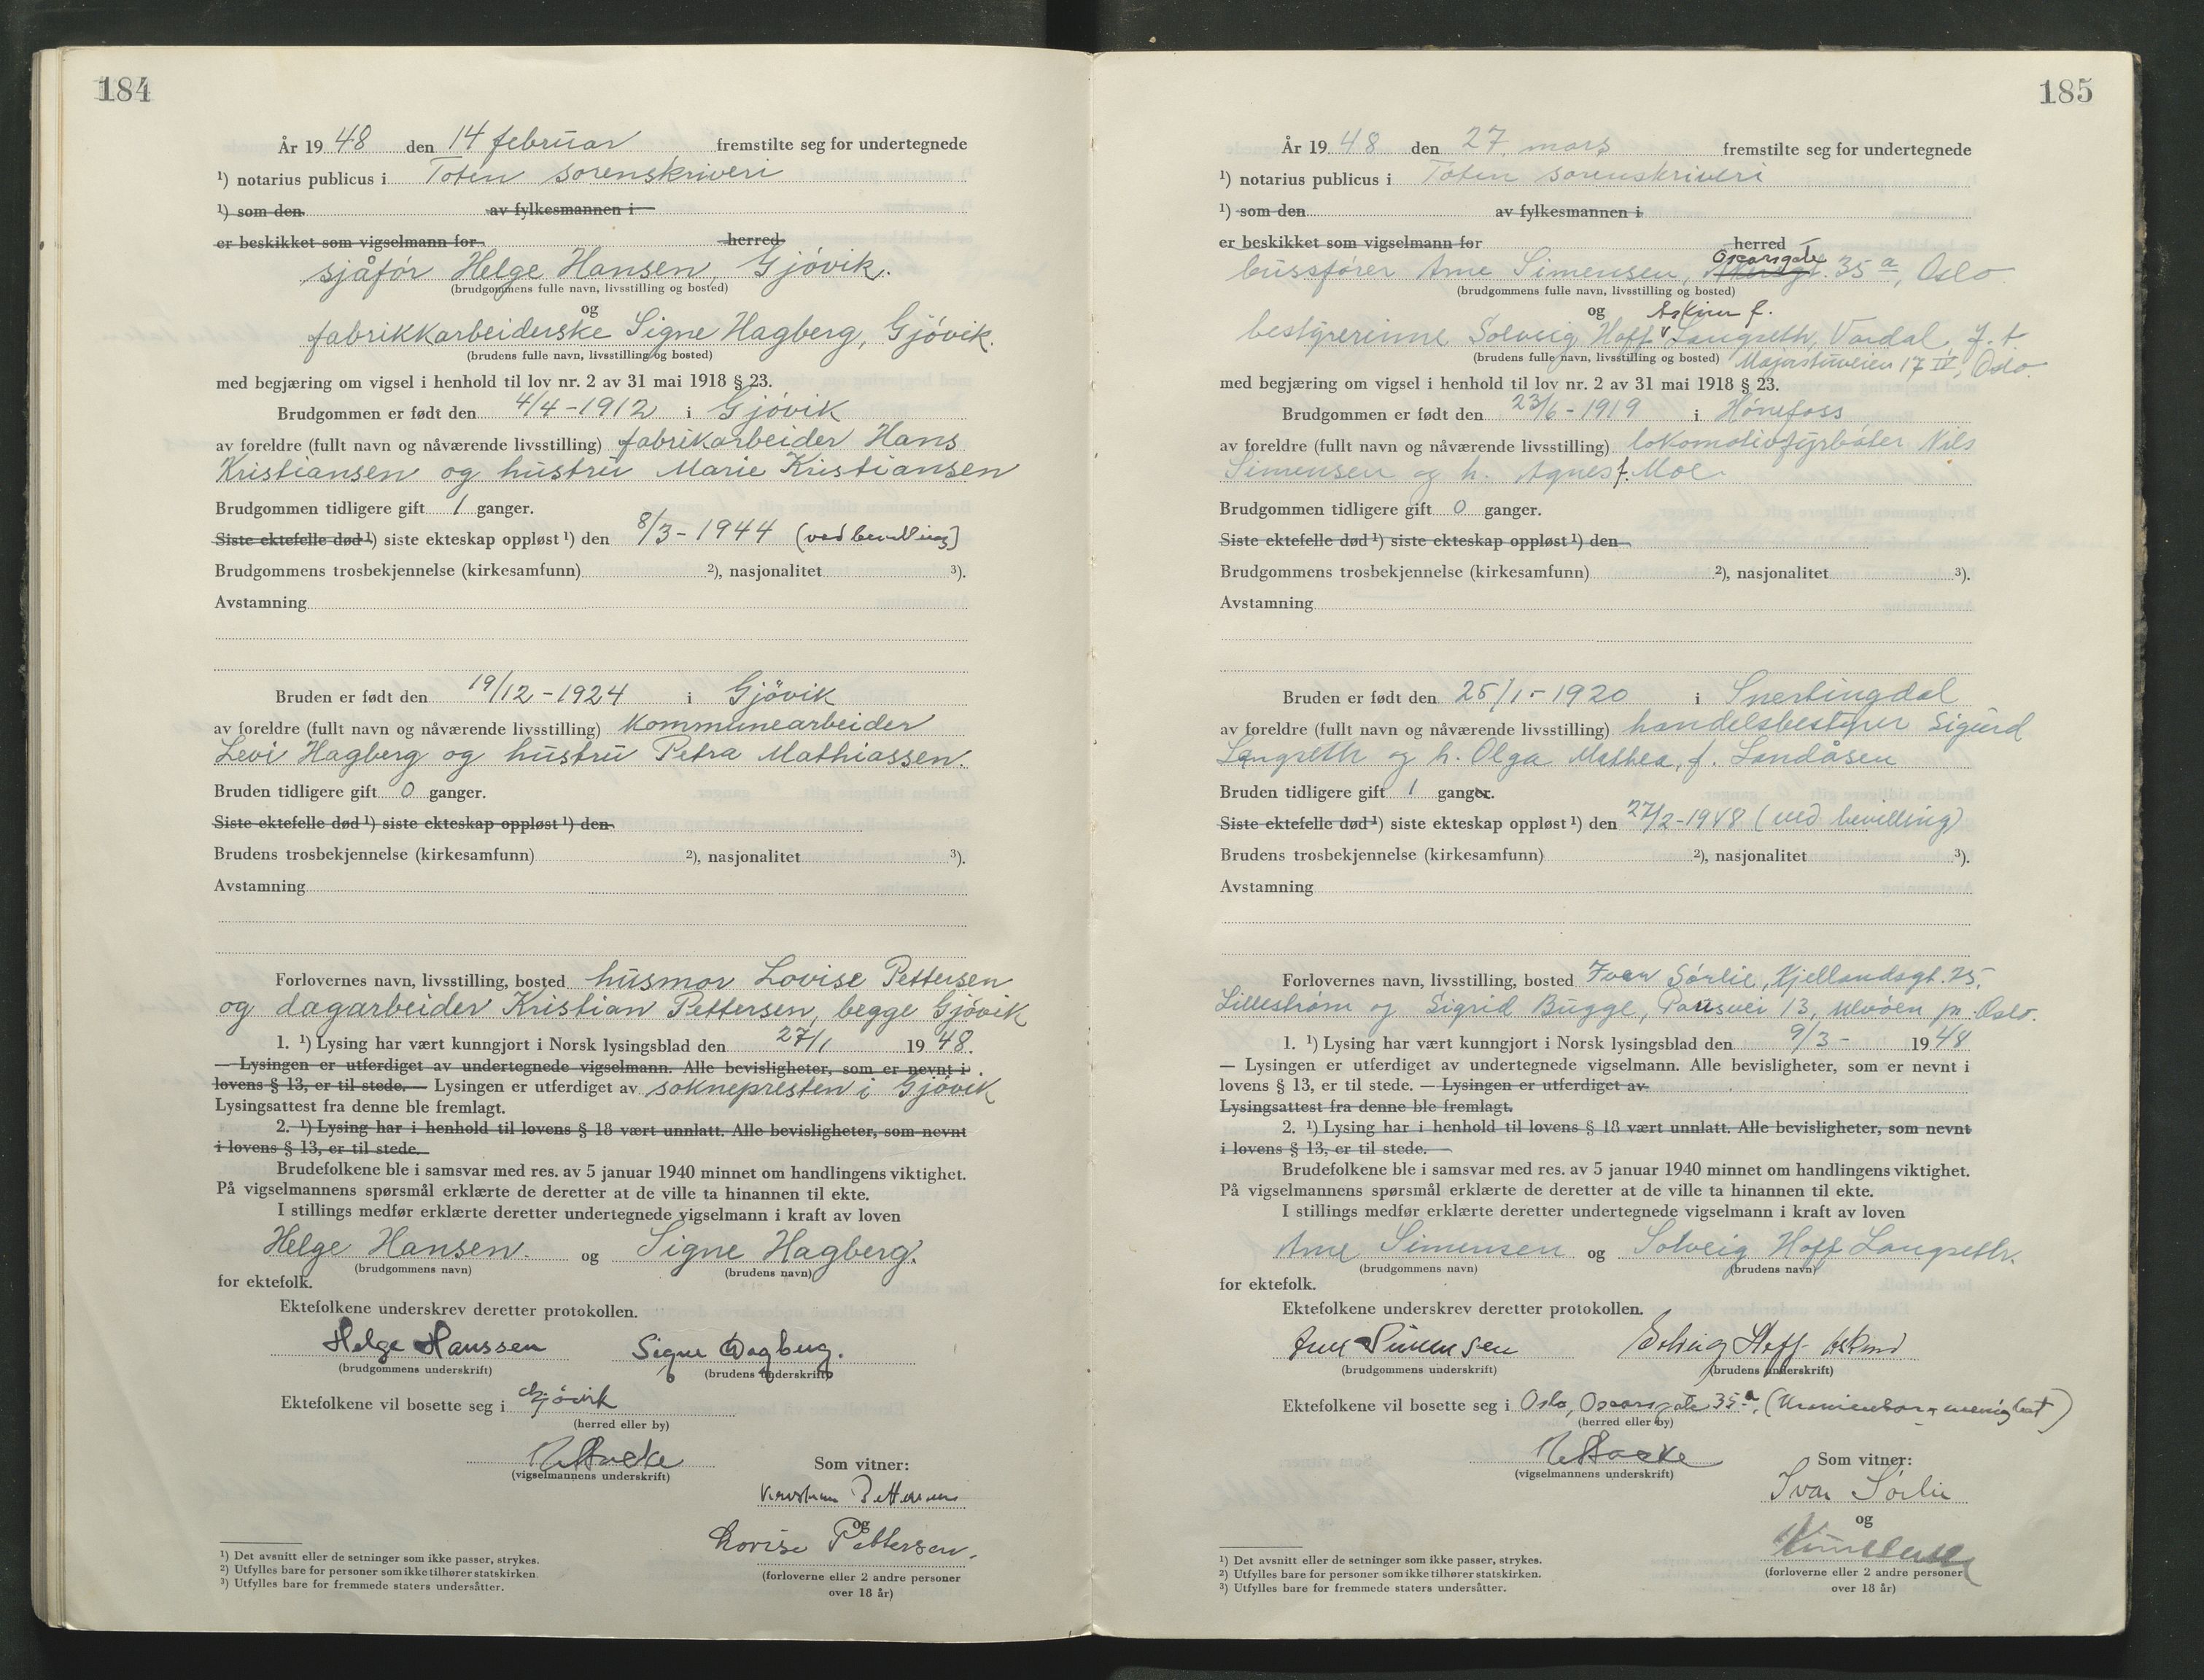 184
År 1948 den 14 februar fremstilte seg for undertegnede
¹) notarius publicus i Toten sorenskriveri
¹) som den av fylkesmannen i
er beskikket som vigselmann for herred
sjåfør Helge Hansen, Gjøvik.
(brudgommens fulle navn, livsstilling og bosted)
og
fabrikkarbeiderske Signe Hagberg, Gjøvik.
(brudens fulle navn, livsstilling og bosted)
med begjæring om vigsel i henhold til lov nr. 2 av 31 mai 1918 § 23.
Brudgommen er født den 4/4-1912 i Gjøvik
av foreldre (fullt navn og nåværende livsstilling) fabrikarbeider Hans
Kristiansen og hustru Marie Kristiansen
Brudgommen tidligere gift 1 ganger.
Siste ektefelle død ¹) siste ekteskap oppløst ¹) den 8/3-1944 (ved bevilling)
Brudgommens trosbekjennelse (kirkesamfunn) ²), nasjonalitet ³).
Avstamning
Bruden er født den 19/12-1924 i Gjövik
av foreldre (fullt navn og nåværende livsstilling) kommunearbeider
Levi Hagberg og hustru Petra Mathiassen.
Bruden tidligere gift 0 ganger.
Siste ektefelle død ¹) siste ekteskap oppløst ¹) den
Brudens trosbekjennelse (kirkesamfunn) ²), nasjonalitet ³).
Avstamning
Forlovernes navn, livsstilling, bosted husmor Lovise Pettersen
og dagarbeider Kristian Pettersen, begge Gjøvik
1. ¹) Lysing har vært kunngjort i Norsk lysingsblad den 27/1 1948.
— Lysingen er utferdiget av undertegnede vigselmann. Alle bevisligheter, som er nevnt i
lovens § 13, er til stede. — Lysingen er utferdiget av soknepresten i Gjøvik
Lysingsattest fra denne ble fremlagt.
2. ¹) Lysing har i henhold til lovens § 18 vært unnlatt. Alle bevisligheter, som nevnt
i lovens § 13, er til stede.
Brudefolkene ble i samsvar med res. av 5 januar 1940 minnet om handlingens viktighet.
På vigselmannens spørsmål erklærte de deretter at de ville ta hinannen til ekte.
I stillings medfør erklærte deretter undertegnede vigselmann i kraft av loven
Helge Hansen. og Signe Hagberg.
(brudgommens navn) (brudens navn)
for ektefolk.
Ektefolkene underskrev deretter protokollen.
Helge Hanssen Signe Hagberg.
(brudgommens underskrift) (brudens underskrift)
Ektefolkene vil bosette seg i Gjøvik
(herred eller by)
(vigselmannens underskrift)
Som vitner:
Kristian Pettersen
og
Lovise Pettersen.
(forloverne eller 2 andre personer
over 18 år)
¹) Det avsnitt eller de setninger som ikke passer, strykes.
²) Utfylles bare for personer som ikke tilhører statskirken
³) Utfylles bare for fremmede staters undersåtter.
185
År 1948 den 27. mars fremstilte seg for undertegnede
¹) notarius publicus i Toten sorenskriveri
¹) som den av fylkesmannen i
er beskikket som vigselmann for herred
Oscarsgate
bussfører Arne Simensen, 35 a, Oslo
(brudgommens fulle navn, livsstilling og bosted)
og Askim f.
bestyrerinne Solveig Hoff Langseth, Vardal, f. t.
(brudens fulle navn, livsstilling og bosted) Majorstuveien 17 IV, Oslo.
med begjæring om vigsel i henhold til lov nr. 2 av 31 mai 1918 § 23.
Brudgommen er født den 23/6-1919 i Hönefoss
av foreldre (fullt navn og nåværende livsstilling) lokomotivfyrbøter Nils
Simensen og h. Agnes f. Moe
Brudgommen tidligere gift 0 ganger.
Siste ektefelle død ¹) siste ekteskap oppløst ¹) den
Brudgommens trosbekjennelse (kirkesamfunn) ²), nasjonalitet ³).
Avstamning
Bruden er født den 25/1-1920 i Snertingdal
av foreldre (fullt navn og nåværende livsstilling) handelsbestyrer Sigurd
Langseth og h. Olga Mathea, f. Landåsen
Bruden tidligere gift 1 ganger.
Siste ektefelle død ¹) siste ekteskap oppløst ¹) den 27/2-1948 (ved bevilling)
Brudens trosbekjennelse (kirkesamfunn) ²), nasjonalitet ³).
Avstamning
Forlovernes navn, livsstilling, bosted Ivar Sørlie, Kjellandsgt. 25,
Lillestrøm og Sigrid Bugge, 13, Ulvøen pr. Oslo.
1. ¹) Lysing har vært kunngjort i Norsk lysingsblad den 9/3- 1948
— Lysingen er utferdiget av undertegnede vigselmann. Alle bevisligheter, som er nevnt i
lovens § 13, er til stede. — Lysingen er utferdiget av
Lysingsattest fra denne ble fremlagt.
2. ¹) Lysing har i henhold til lovens § 18 vært unnlatt. Alle bevisligheter, som nevnt
i lovens § 13, er til stede. —
Brudefolkene ble i samsvar med res. av 5 januar 1940 minnet om handlingens viktighet.
På vigselmannens spørsmål erklærte de deretter at de ville ta hinannen til ekte.
I stillings medfør erklærte deretter undertegnede vigselmann i kraft av loven
Arne Simensen og Solveig Hoff Langseth.
(brudgommens navn) (brudens navn)
for ektefolk.
Ektefolkene underskrev deretter protokollen.
Arne Simensen Solveig Hoff Askim
(brudgommens underskrift) (brudens underskrift)
Ektefolkene vil bosette seg i Oslo, Oscarsgate 35 a, (Uranienborg menighet)
(herred eller by)
(vigselmannens underskrift)
Som vitner:
Ivar Sørlie
og
(forloverne eller 2 andre personer
over 18 år)
¹) Det avsnitt eller de setninger som ikke passer, strykes.
²) Utfylles bare for personer som ikke tilhører statskirken.
³) Utfylles bare for fremmede staters undersåtter.